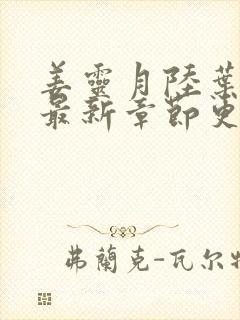 姜靈月陸葉
最新章節更
弗蘭克-瓦尔特